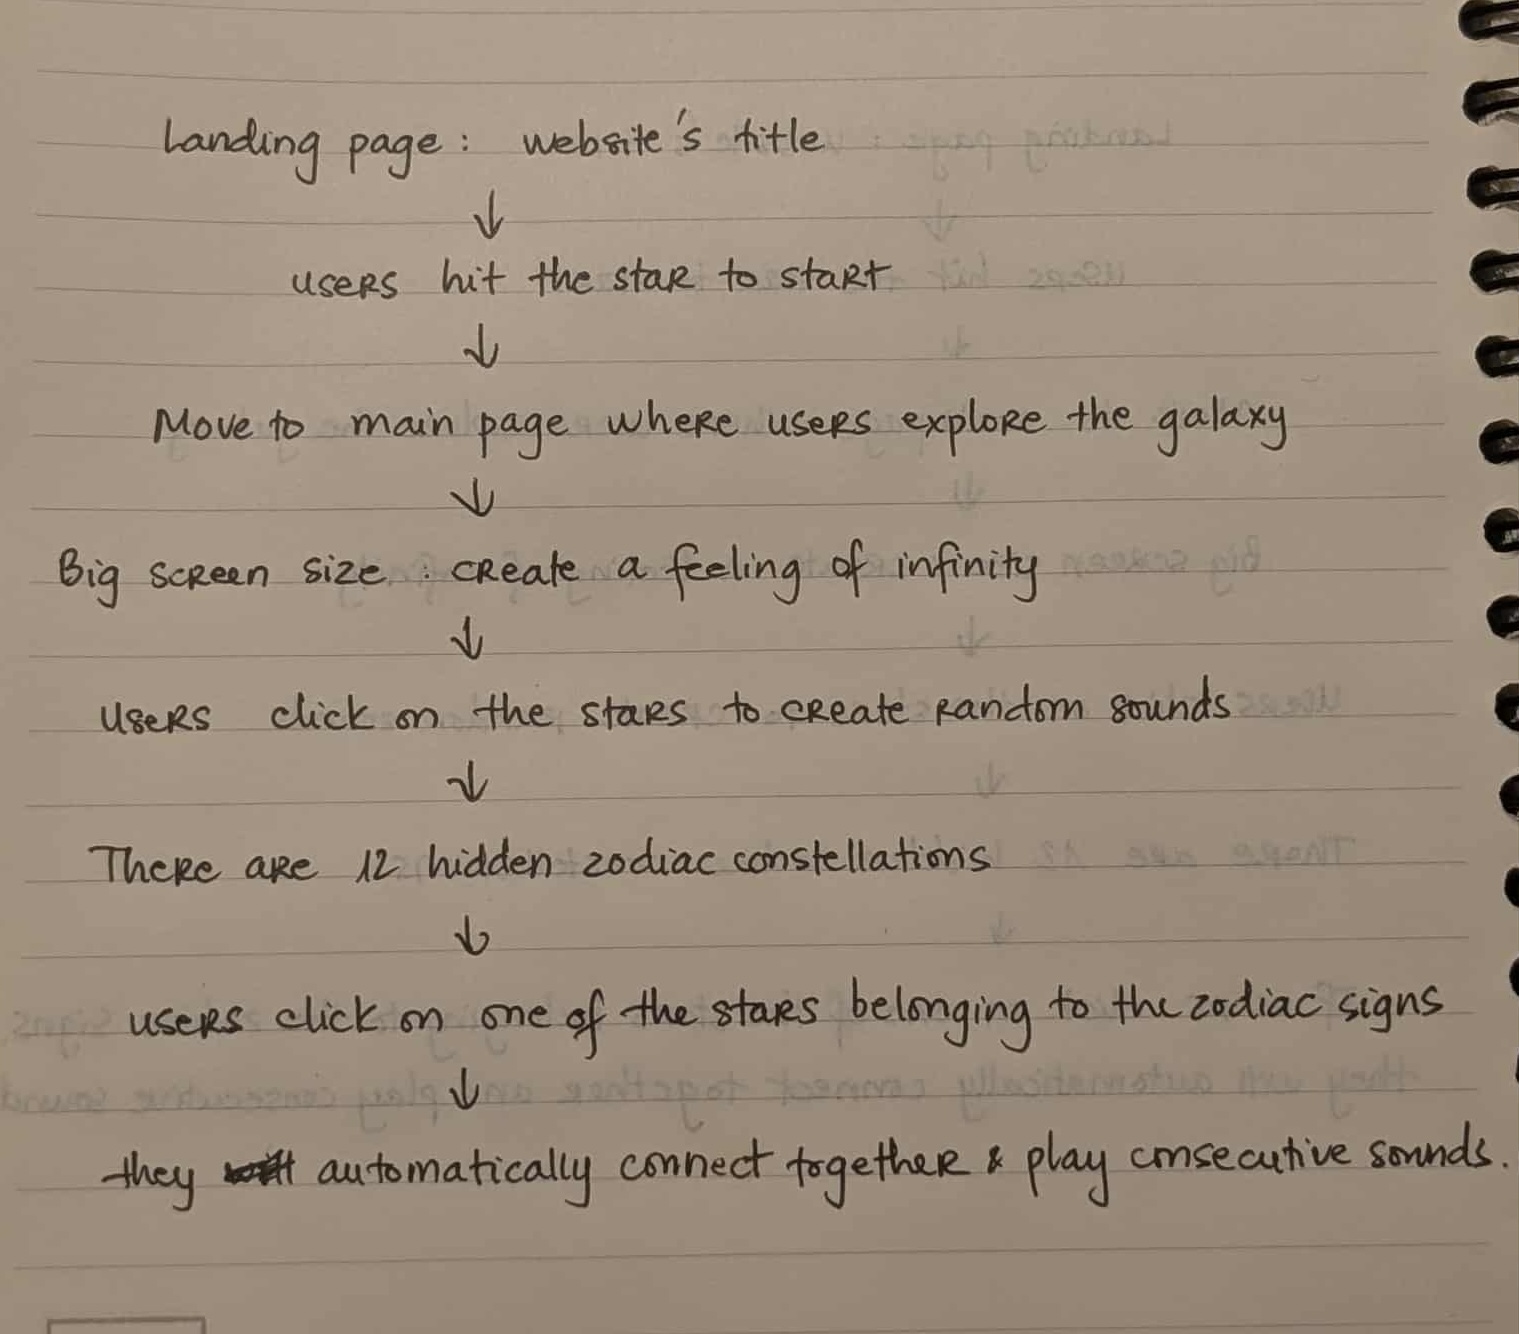 Landing page : website's title
↓
users hit the star to start
↓
Move to main page where users explore the galaxy
↓
Big screen size : create a feeling of infinity
↓
Users click on the stars to create random sounds
↓
There are 12 hidden zodiac constellations
↓
users click on one of the stars belonging to the zodiac signs
↓
they automatically connect together & play consecutive sounds.